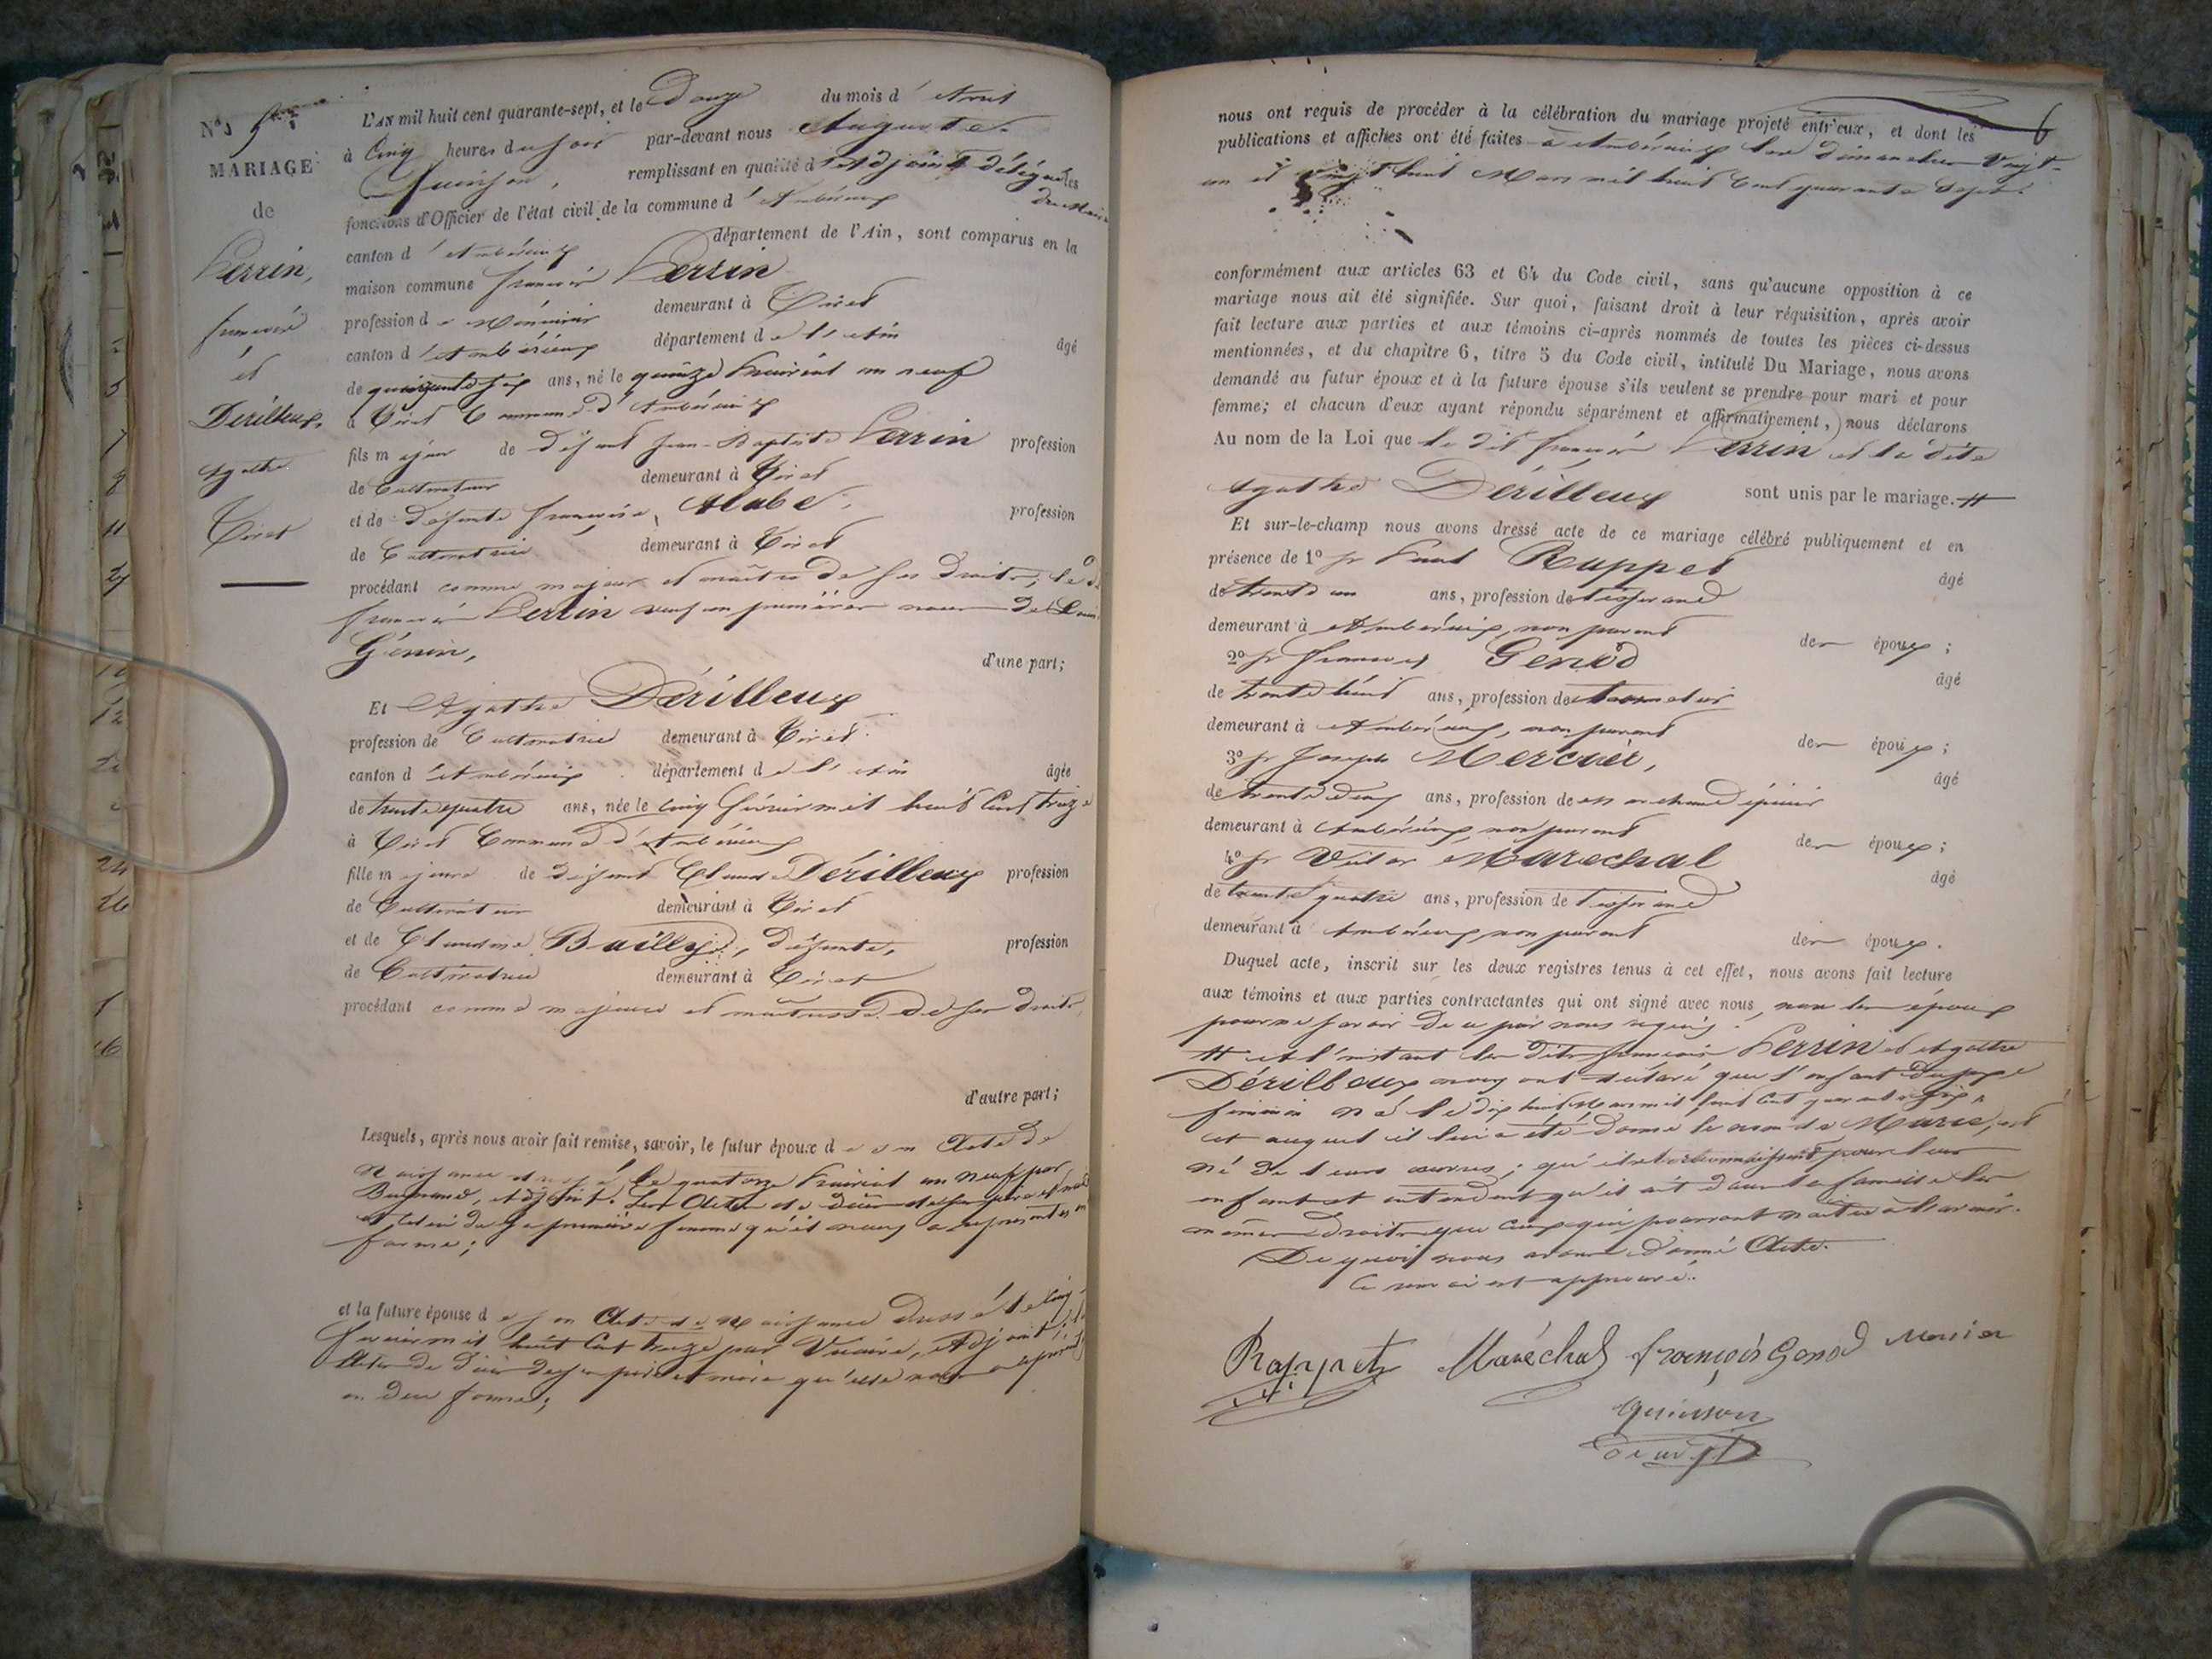 L'AN mil huit cent quarante-sept, et le Douze du mois d'Avril
à Cinq heures du soir par-devant nous Auguste
Quinson, remplissant en qualité d'Adjoint délégué les
du Maire
fonctions d'Officier de l'état civil de la commune d'Ambérieux
canton d'Ambérieux département de l'Ain, sont comparus en la
maison commune françois Perrin
profession de demeurant à Tiret
canton d'Ambérieux département de l'Ain âgé
de ans, né le quinze an neuf
à Tiret Commune d'Ambérieux
fils majeur de Défunt Jean-Baptiste Perrin profession
de Cultivateur demeurant à Tiret
et de Défunte françoise Alabe profession
de Cultivatrice demeurant à Tiret
procédant comme majeur et maître de ses Droits, le d.
françois Perrin veuf en premières noces de
Génin, d'une part;
Et Agathe Dérilleux
profession de Cultivatrice demeurant à Tiret
canton d'Ambérieux département de l'Ain âgée
de trente quatre ans, née le cinq février mil huit Cent treize
à Tiret Commune d'Ambérieux
fille majeure de défunt Claude Dérilleux profession
de Cultivateur demeurant à Tiret
et de Claudine Bailly, défunte, profession
de Cultivatrice demeurant à Tiret
procédant comme majeure et maîtresse de ses droits
d'autre part;
Lesquels, après nous avoir fait remise, savoir, le futur époux de son Acte de
Naissance le quatorze an neuf par
Adjoint. Les Actes de décès de ses père et mère
et celui de sa première femme qu'il nous a représentés en
forme;
et la future épouse de son Acte de Naissance Dressé le cinq
février mil huit Cent treize par Adjoint,
Actes de Décès de ses père et mère qu'elle nous a
en due forme;
N° 5
MARIAGE
de
Perrin,
françois
et
Dérilleux,
Agathe
Tiret
6
nous ont requis de procéder à la célébration du mariage projeté entr'eux, et dont les
publications et affiches ont été faites à Ambérieux les dimanches Vingt-
un et vingt huit Mars mil huit Cent quarante Sept.
conformément aux articles 63 et 64 du Code civil, sans qu'aucune opposition à ce
mariage nous ait été signifiée. Sur quoi, faisant droit à leur réquisition, après avoir
fait lecture aux parties et aux témoins ci-après nommés de toutes les pièces ci-dessus
mentionnées, et du chapitre 6, titre 5 du Code civil, intitulé Du Mariage, nous avons
demandé au futur époux et à la future épouse s'ils veulent se prendre pour mari et pour
femme; et chacun d'eux ayant répondu séparément et affirmativement, nous déclarons
Au nom de la Loi que le dit françois Perrin et la dite
Agathe Dérilleux sont unis par le mariage. #
Et sur-le-champ nous avons dressé acte de ce mariage célébré publiquement et en
présence de 1° Sr Rappet âgé
de trente un ans, profession de tisserand
demeurant à Ambérieux, non parent des époux;
2° Sr François Genod âgé
de trente huit ans, profession de
demeurant à Ambérieux, non parent des époux;
3° Sr Joseph Mercier, âgé
de trente deux ans, profession de marchand épicier
demeurant à Ambérieux, non parent des époux;
4° Sr Victor Maréchal âgé
de trente quatre ans, profession de tisserand
demeurant à Ambérieux, non parent des époux.
Duquel acte, inscrit sur les deux registres tenus à cet effet, nous avons fait lecture
aux témoins et aux parties contractantes qui ont signé avec nous, non les époux
pour ne savoir de ce par nous requis.
# et à l'instant les dits françois Perrin et Agathe
Dérilleux nous ont déclaré que l'enfant du sexe
féminin né le dix huit Mars mil huit Cent quarante six,
et auquel il lui a été donné le nom de Marie, est
né de leurs œuvres; qu'ils le reconnaissent pour leur
enfant et entendent qu'il ait dans la famille les
mêmes droits que ceux qui pourront naître à l'avenir.
De quoi nous avons donné Acte.
Ce renvoi est approuvé.
Rappet Maréchal françois Genod Mercier
Quinson